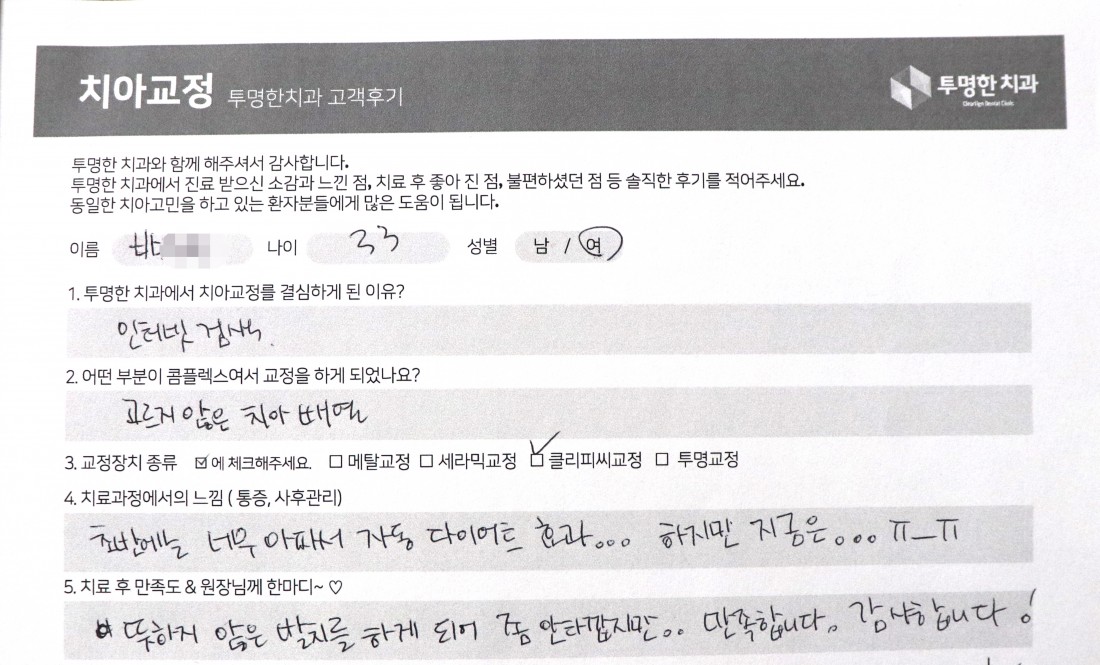 치아교정 투명한치과 고객후기
투명한 치과
ClearSign Dental Clinic
투명한 치과와 함께 해주셔서 감사합니다.
투명한 치과에서 진료 받으신 소감과 느낀 점, 치료 후 좋아 진 점, 불편하셨던 점 등 솔직한 후기를 적어주세요.
동일한 치아고민을 하고 있는 환자분들에게 많은 도움이 됩니다.
이름 나이 33 성별 남 / 여
1. 투명한 치과에서 치아교정를 결심하게 된 이유?
인터넷 검색.
2. 어떤 부분이 콤플렉스여서 교정을 하게 되었나요?
고르지 않은 치아 배열
3. 교정장치 종류 ☑에 체크해주세요. □ 메탈교정 □ 세라믹교정 ☑ 클리피씨교정 □ 투명교정
4. 치료과정에서의 느낌 ( 통증, 사후관리)
초반에는 너무 아파서 자동 다이어트 효과... 하지만 지금은... ㅠ_ㅠ
5. 치료 후 만족도 & 원장님께 한마디~ ♡
뜻하지 않은 발치를 하게 되어 좀 안타깝지만.. 만족합니다. 감사합니다!